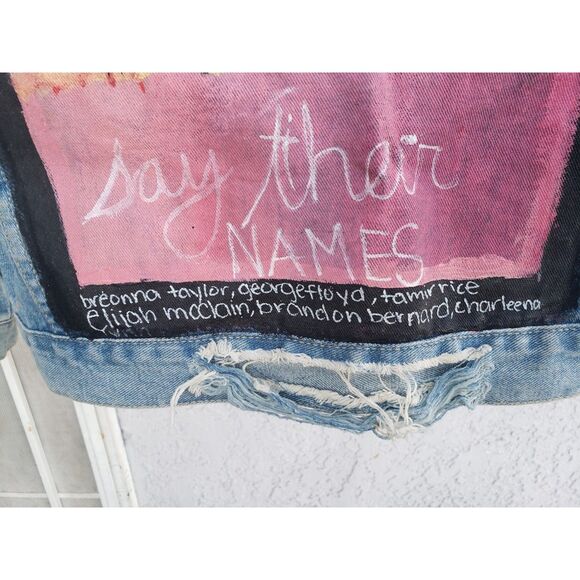 say their
NAMES
breonna taylor, george floyd, tamir rice
elijah mcclain, brandon bernard, charleena